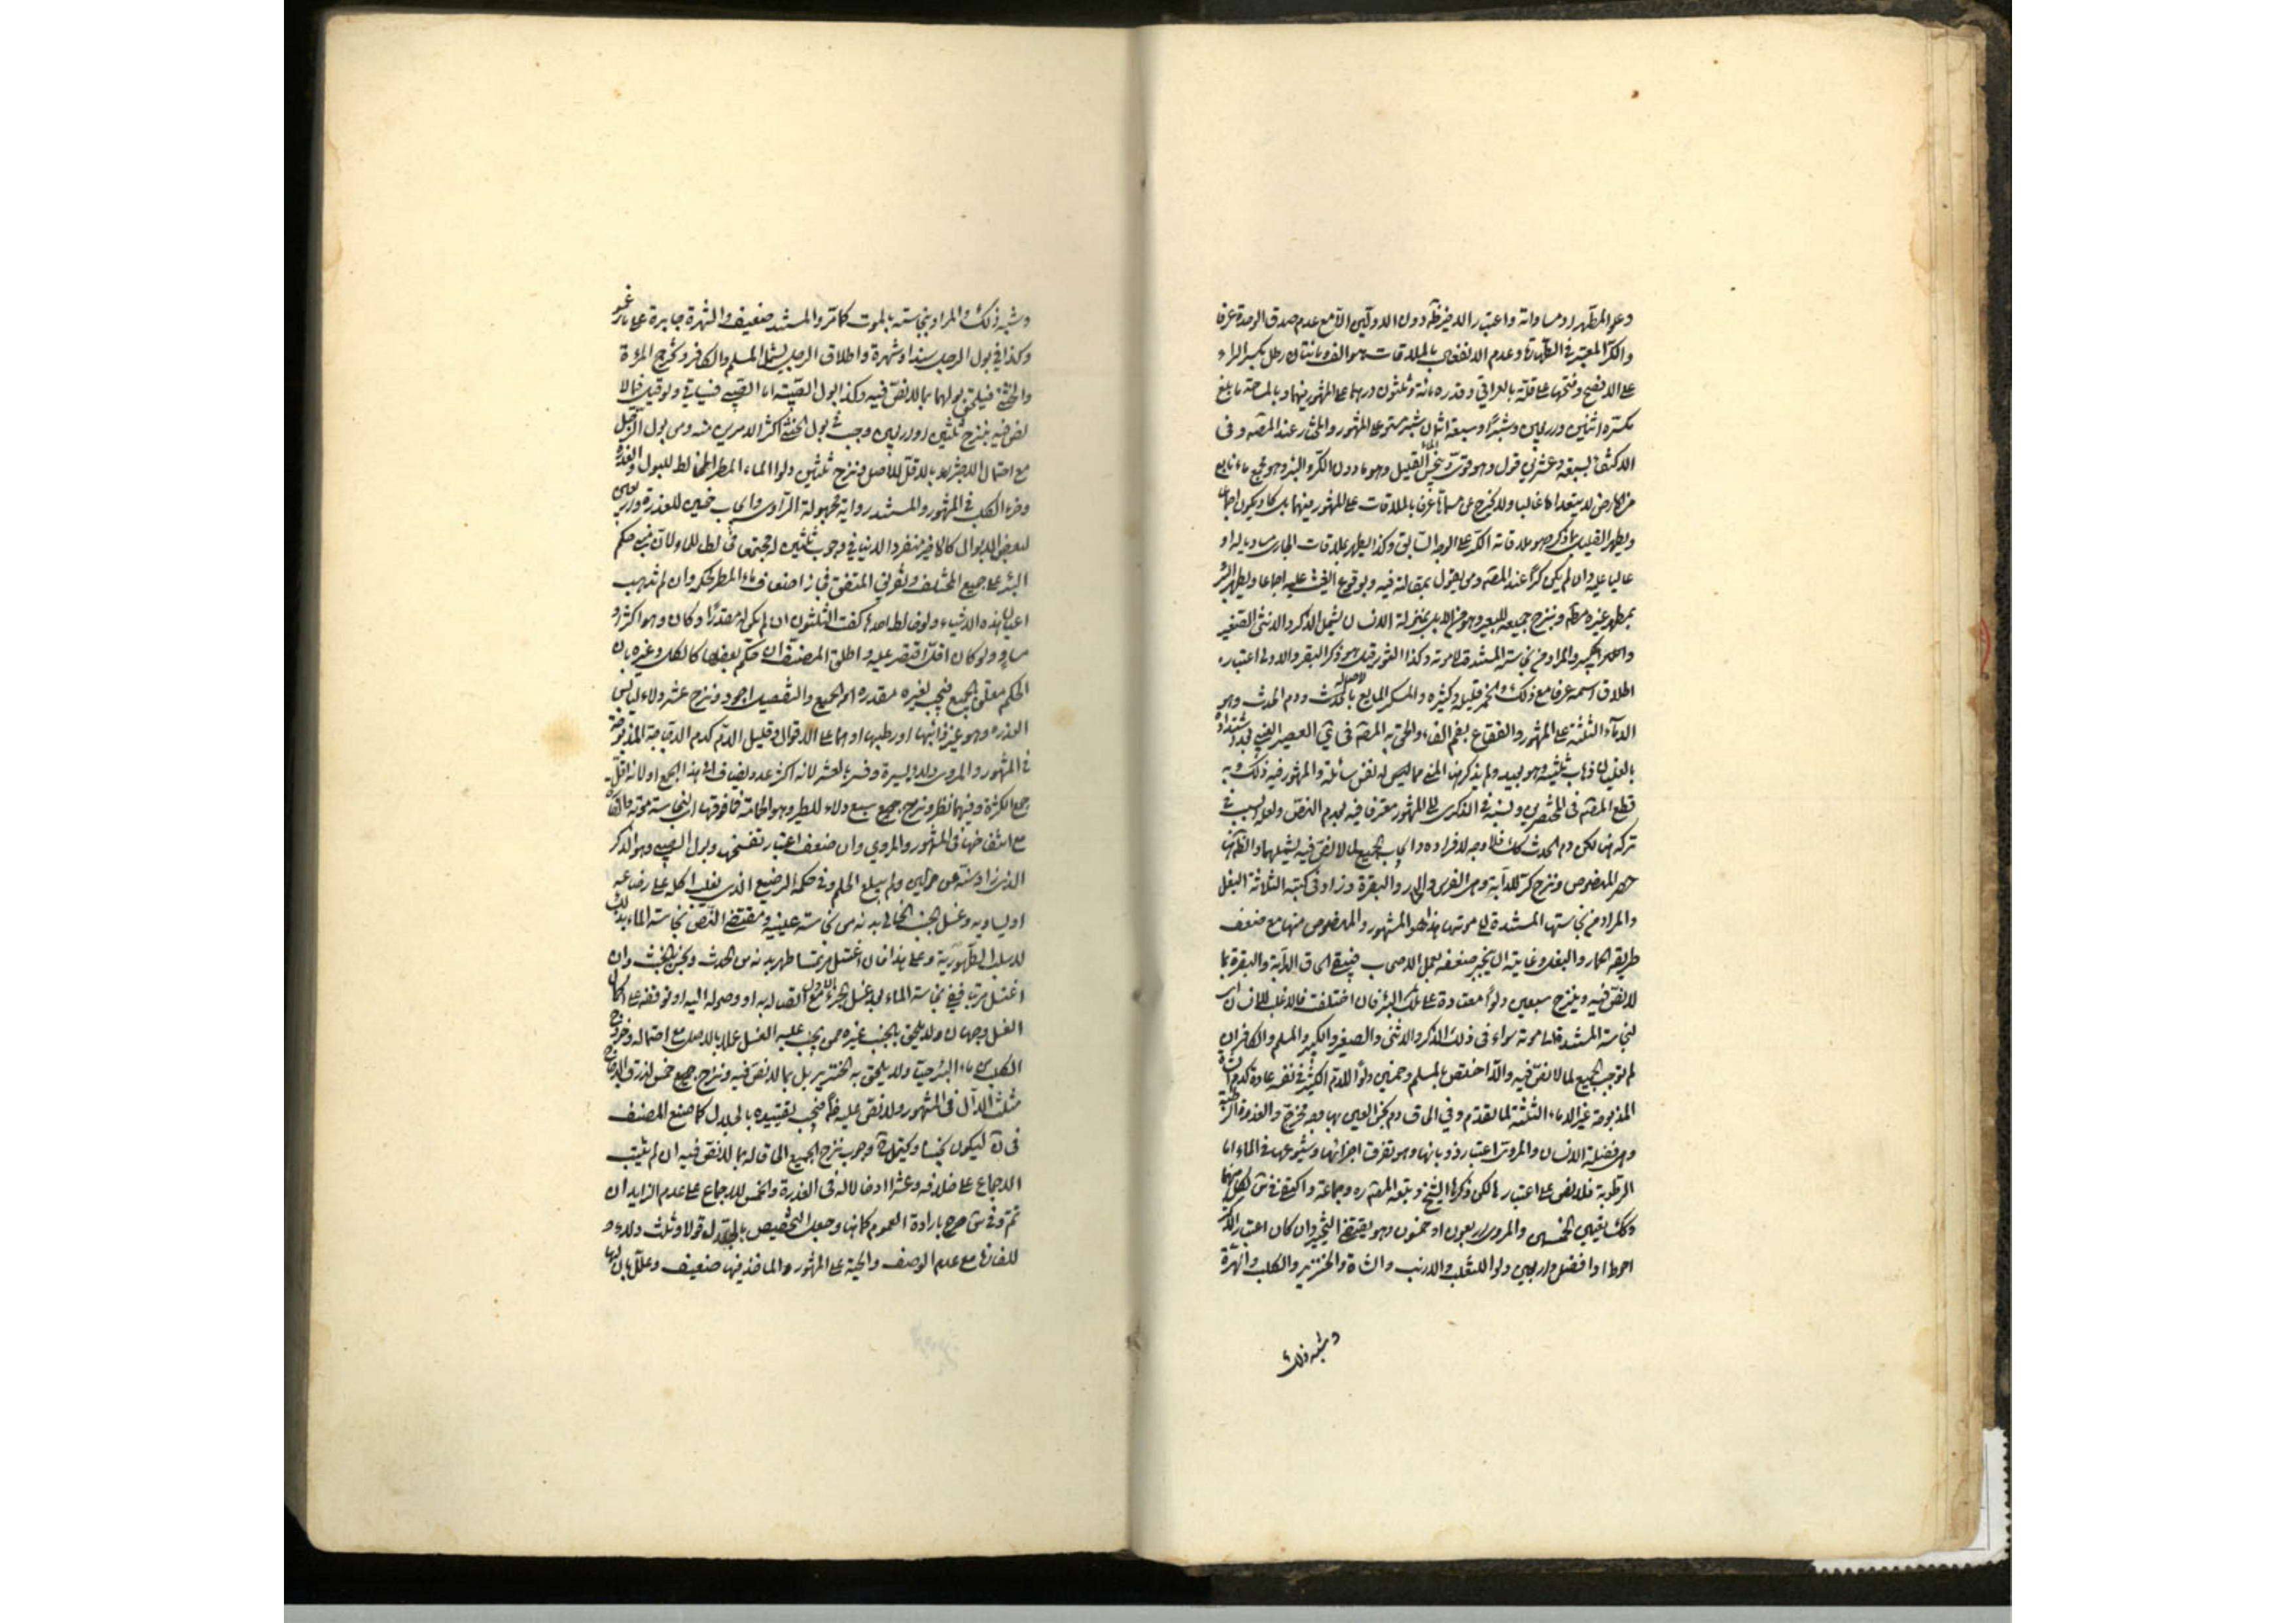 وعلو المطهر او مساواته واعتبار الدفيز ظ دون الاولين الا مع عدم صدق الوحدة عرفا
والكر المعتبر في الطهارة وعدم الانفعال بالملاقات هو الف ومائتان رطل بكسر الراء
على الافصح وفتحها على قلة بالعراقي وقدره مائة وثلثون درهما على المشهور فيهما وبالمساحة ما بلغ
مكسره اثنين واربعين شبرا وسبعة اثمان شبر مستو على المشهور والمختار عند المصه وفي
الاكتفاء بسبعة وعشرين قول وهو قوي وينجس الماء القليل وهو ما دون الكر والبئر وهو مجمع ماء نابع
من الارض لا يتعداها غالبا ولا يخرج عن مسماها عرفا بالملاقات على المشهور فيهما بل كاد يكون اجماعا
ويطهر القليل بما ذكر وهو ملاقاته الكر على الوجه السابق وكذا يطهر بملاقات الجاري مساويا له او
عاليا عليه وان لم يكن كرا عند المصه ومن يقول بمقالته فيه وبوقوع الغيث عليه اجماعا ويطهر البئر
بمطهر غيره مطه وبنزح جميعه للبعير وهو من الابل بمنزلة الانسان يشمل الذكر والانثى الصغير
والكبير والمراد من نجاسته المستندة الى موته وكذا الثور قيل هو ذكر البقر والاولى اعتباره
اطلاق اسمه عرفا مع ذلك والخمر قليله وكثيره والمسكر المايع بالاصالة ودم الحدث وهو
الدماء الثلثة على المشهور والفقاع بضم الفاء والحق به المصه في ى العصير العنبي بعد اشتداده
بالغليان قبل ذهاب ثلثيه وهو بعيد ولم يذكر هنا المني مما ليس له نفس سائلة والمشهور فيه ذلك وبه
قطع المصه في المختصرين ونسبه في الذكرى الى المشهور معترفا فيه بعدم النص ولعله السبب في
تركه هنا لكن دم الحدث كك فلا وجه لافراده وايجاب الجميع لما لا نص فيه يشملهما والظاهر هنا
حصر المنصوص ونزح كر للدابة وهي الفرس والحمار والبقرة وزاد في كتبه الثلاثة البغل
والمراد من نجاستها المستندة الى موتها هذا هو المشهور والمنصوص منها مع ضعف
طريقه الحمار والبغل وغايته ان ينجبر ضعفه بعمل الاصحاب فيبقى الحاق الدابة والبقرة بما
لا نص فيه وينزح سبعين دلوا معتادة على تلك البئر فان اختلفت فالاغلب للانسان اي
لنجاسته المستندة الى موته سواء في ذلك الذكر والانثى والصغير والكبير والمسلم والكافر ان
لم نوجب الجميع لما لا نص فيه والا اختص بالمسلم وخمسين دلوا للدم الكثير في نفسه عادة كدم الشاة
المذبوحة غير الدماء الثلثة لما تقدم وفي الحاق دم نجس العين بها وجه مخرج والعذرة الرطبة
وهي فضلة الانسان والمروى اعتبار ذوبانها وهو تفرق اجزائها وشيوعها في الماء اما
الرطوبة فلا نص على اعتبارها لكن ذكرها الشيخ وتبعه المصه وجماعة واكتفى في س بكل منهما
وكك تعيين الخمسين والمروى اربعون او خمسون وهو يقتضي التخيير وان كان اعتبار الاكثر
احوط او افضل واربعين دلوا للثعلب والارنب والشاة والخنزير والكلب والهرة
وشبه ذلك
وشبه ذلك والمراد نجاسته بالموت كما مر والمستند ضعيف والشهرة جابرة على ما زعموا
وكذا في بول الرجل سندا وشهرة واطلاق الرجل يشمل المسلم والكافر وتخرج المرءة
والخنثى فيلحق بولهما بما لا نص فيه وكذا بول الصبية اما الصبي فسياتي ولو قيل فيما لا
نص فيه بنزح ثلثين او اربعين وجب في بول الخنثى اكثر الامرين منه ومن بول الرجل
مع احتمال الاجتزاء بالاقل للاصل ونزح ثلثين دلوا لماء المطر المخالط للبول والعذرة
وخرء الكلب في المشهور والمستند رواية مجهولة الراوي وايجاب خمسين للعذرة واربعين
لبعض الابوال كالاخير منفردا لا ينافي وجوب ثلثين لجتمعها مخالطا للماء لان مبنى حكم
البئر على جميع المختلف وتفريق المتفق فجاز اضعاف ماء المطر لحكمه وان لم تذهب
اعيان هذه الاشياء ولو خالط احدها كفت الثلثون ان لم يكن له مقدر او كان وهو اكثر او
مساو ولو كان اقل اقتصر عليه واطلق المصنف ان حكم بعضها كالكل وغيره بان
الحكم معلق بالجميع فيجب لغيره مقدره او الجميع والتفصيل اجود ونزح عشر دلاء ليابس
العذرة وهو غير ذائبها او رطبها او هما على الاقوال وقليل الدم كدم الدجاجة المذبوحة
في المشهور والمروى دلاء يسيرة وفسرت بالعشر لانه اكثر عدد يضاف الى هذا الجمع او لانه اقل
جمع الكثرة وفيهما نظر ونزح جميع سبع دلاء للطير وهو الحمامة فما فوقها اي لنجاسة موته والفارة
مع انتفاخها في المشهور والمروي وان ضعف اعتبار تفسخها وبول الصبي وهو الذكر
الذي زاد سنه عن حولين ولم يبلغ الحلم وفي حكمه الرضيع الذي يغلب اكله على رضاعه
او يساويه وغسل الجنب الخالي بدنه من نجاسة عينية ومقتضى النص نجاسة الماء بذلك
لا سلب الطهورية وعلى هذا فان اغتسل مرتمسا طهر بدنه من الحدث ونجس بالخبث وان
اغتسل مرتبا ففي نجاسة الماء بعد غسل الجزء الاول مع اتصاله به او وصوله اليه او توقفه على اكمال
الغسل وجهان ولا يلحق بالجنب غيره ممن يجب عليه الغسل عملا بالاصل مع احتماله وخروج
الكلب من ماء البئر حيا ولا يلحق به الخنزير بل بما لا نص فيه ونزح جميع خمس لذرق الدجاج
مثلث الدال في المشهور ولا نص عليه ظاهرا فيجب تقييده بالجلال كما صنع المصنف
في ن ليكون نجسا ويحتمل ح وجوب نزح الجميع الحاقا له بما لا نص فيه ان لم يثبت
الاجماع على خلافه وعشر ادخالا له في العذرة والخمس للاجماع على عدم الزايد ان
تم وفي س صرح بارادة العموم كما هنا وجعل التخصيص بالجلال قولا وثلث دلاء
للفارة مع عدم الوصف والحية على المشهور والماخذ فيها ضعيف وعلل بان لها